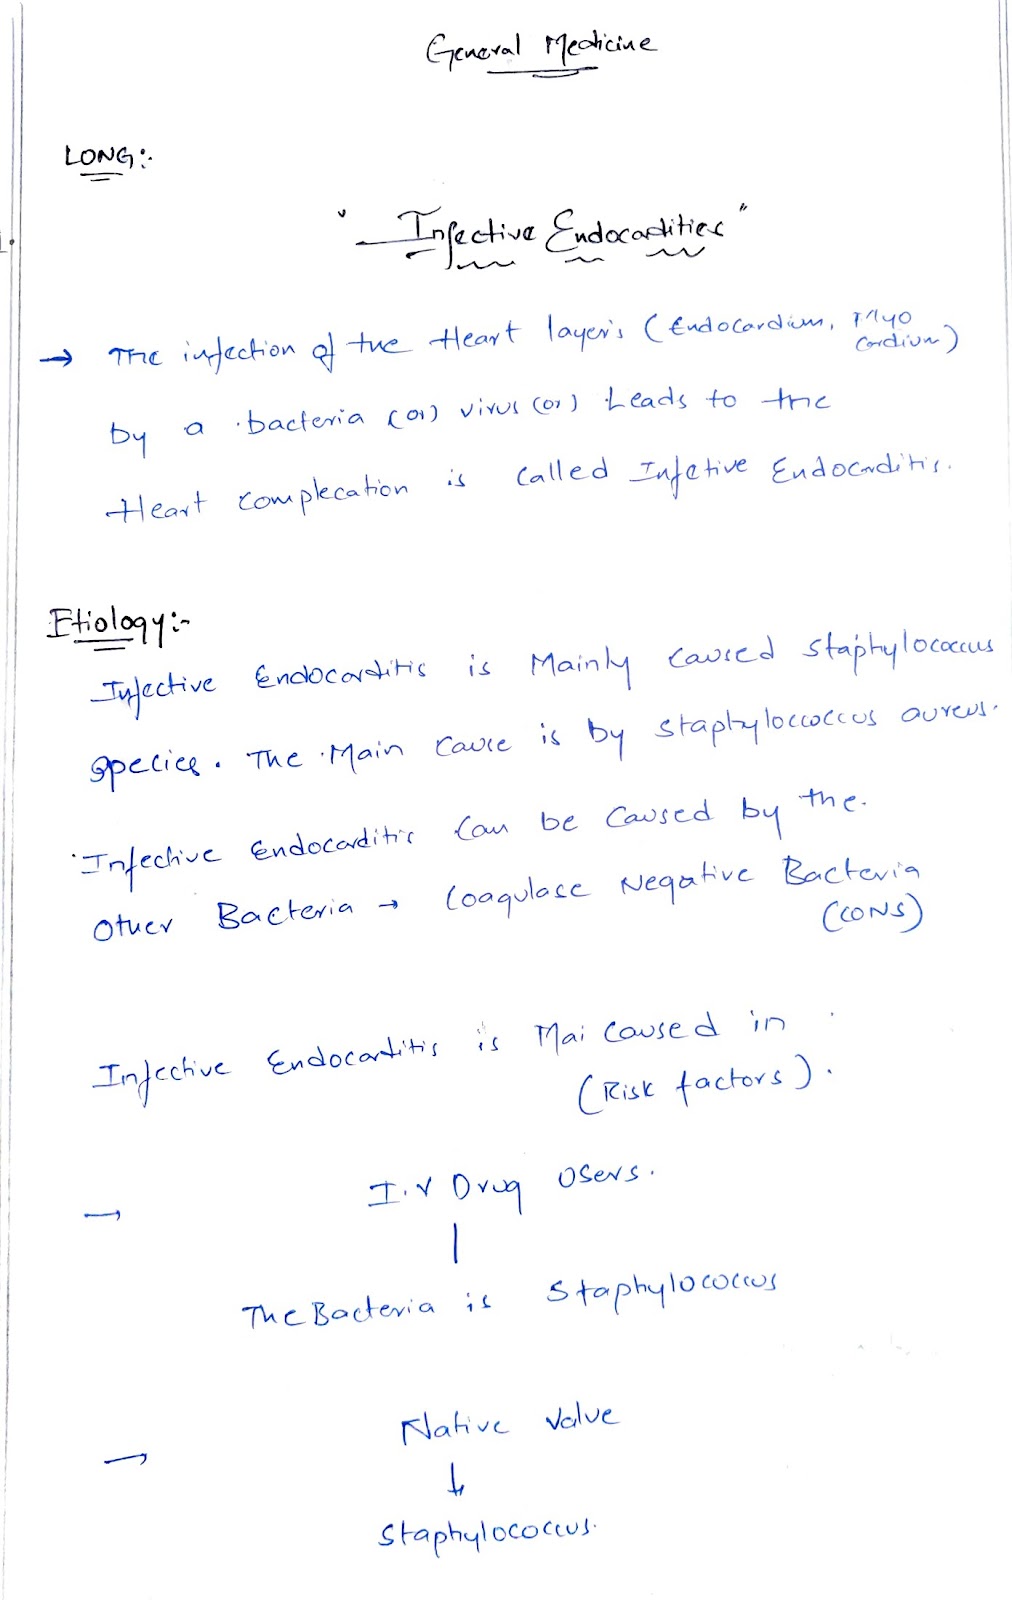 General Medicine
LONG:-
1.
" Infective Endocardities "
→ The infection of the Heart layer's (Endocardium, Myo
cardium)
by a bacteria (or) virus (or) Leads to the
Heart complecation is called Infetive Endocarditis.
Etiology:-
Infective Endocarditis is Mainly caused Staphylococcus
species. The Main cause is by staphyloccoccus aureus.
Infective Endocarditis Can be caused by the.
Other Bacteria → Coagulase Negative Bacteria
(CONS)
Infective Endocarditis is Mai Caused in
(Risk factors).
→ I.V Drug Users.
|
The Bacteria is Staphylococcus
→ Native Valve
↓
Staphylococcus.